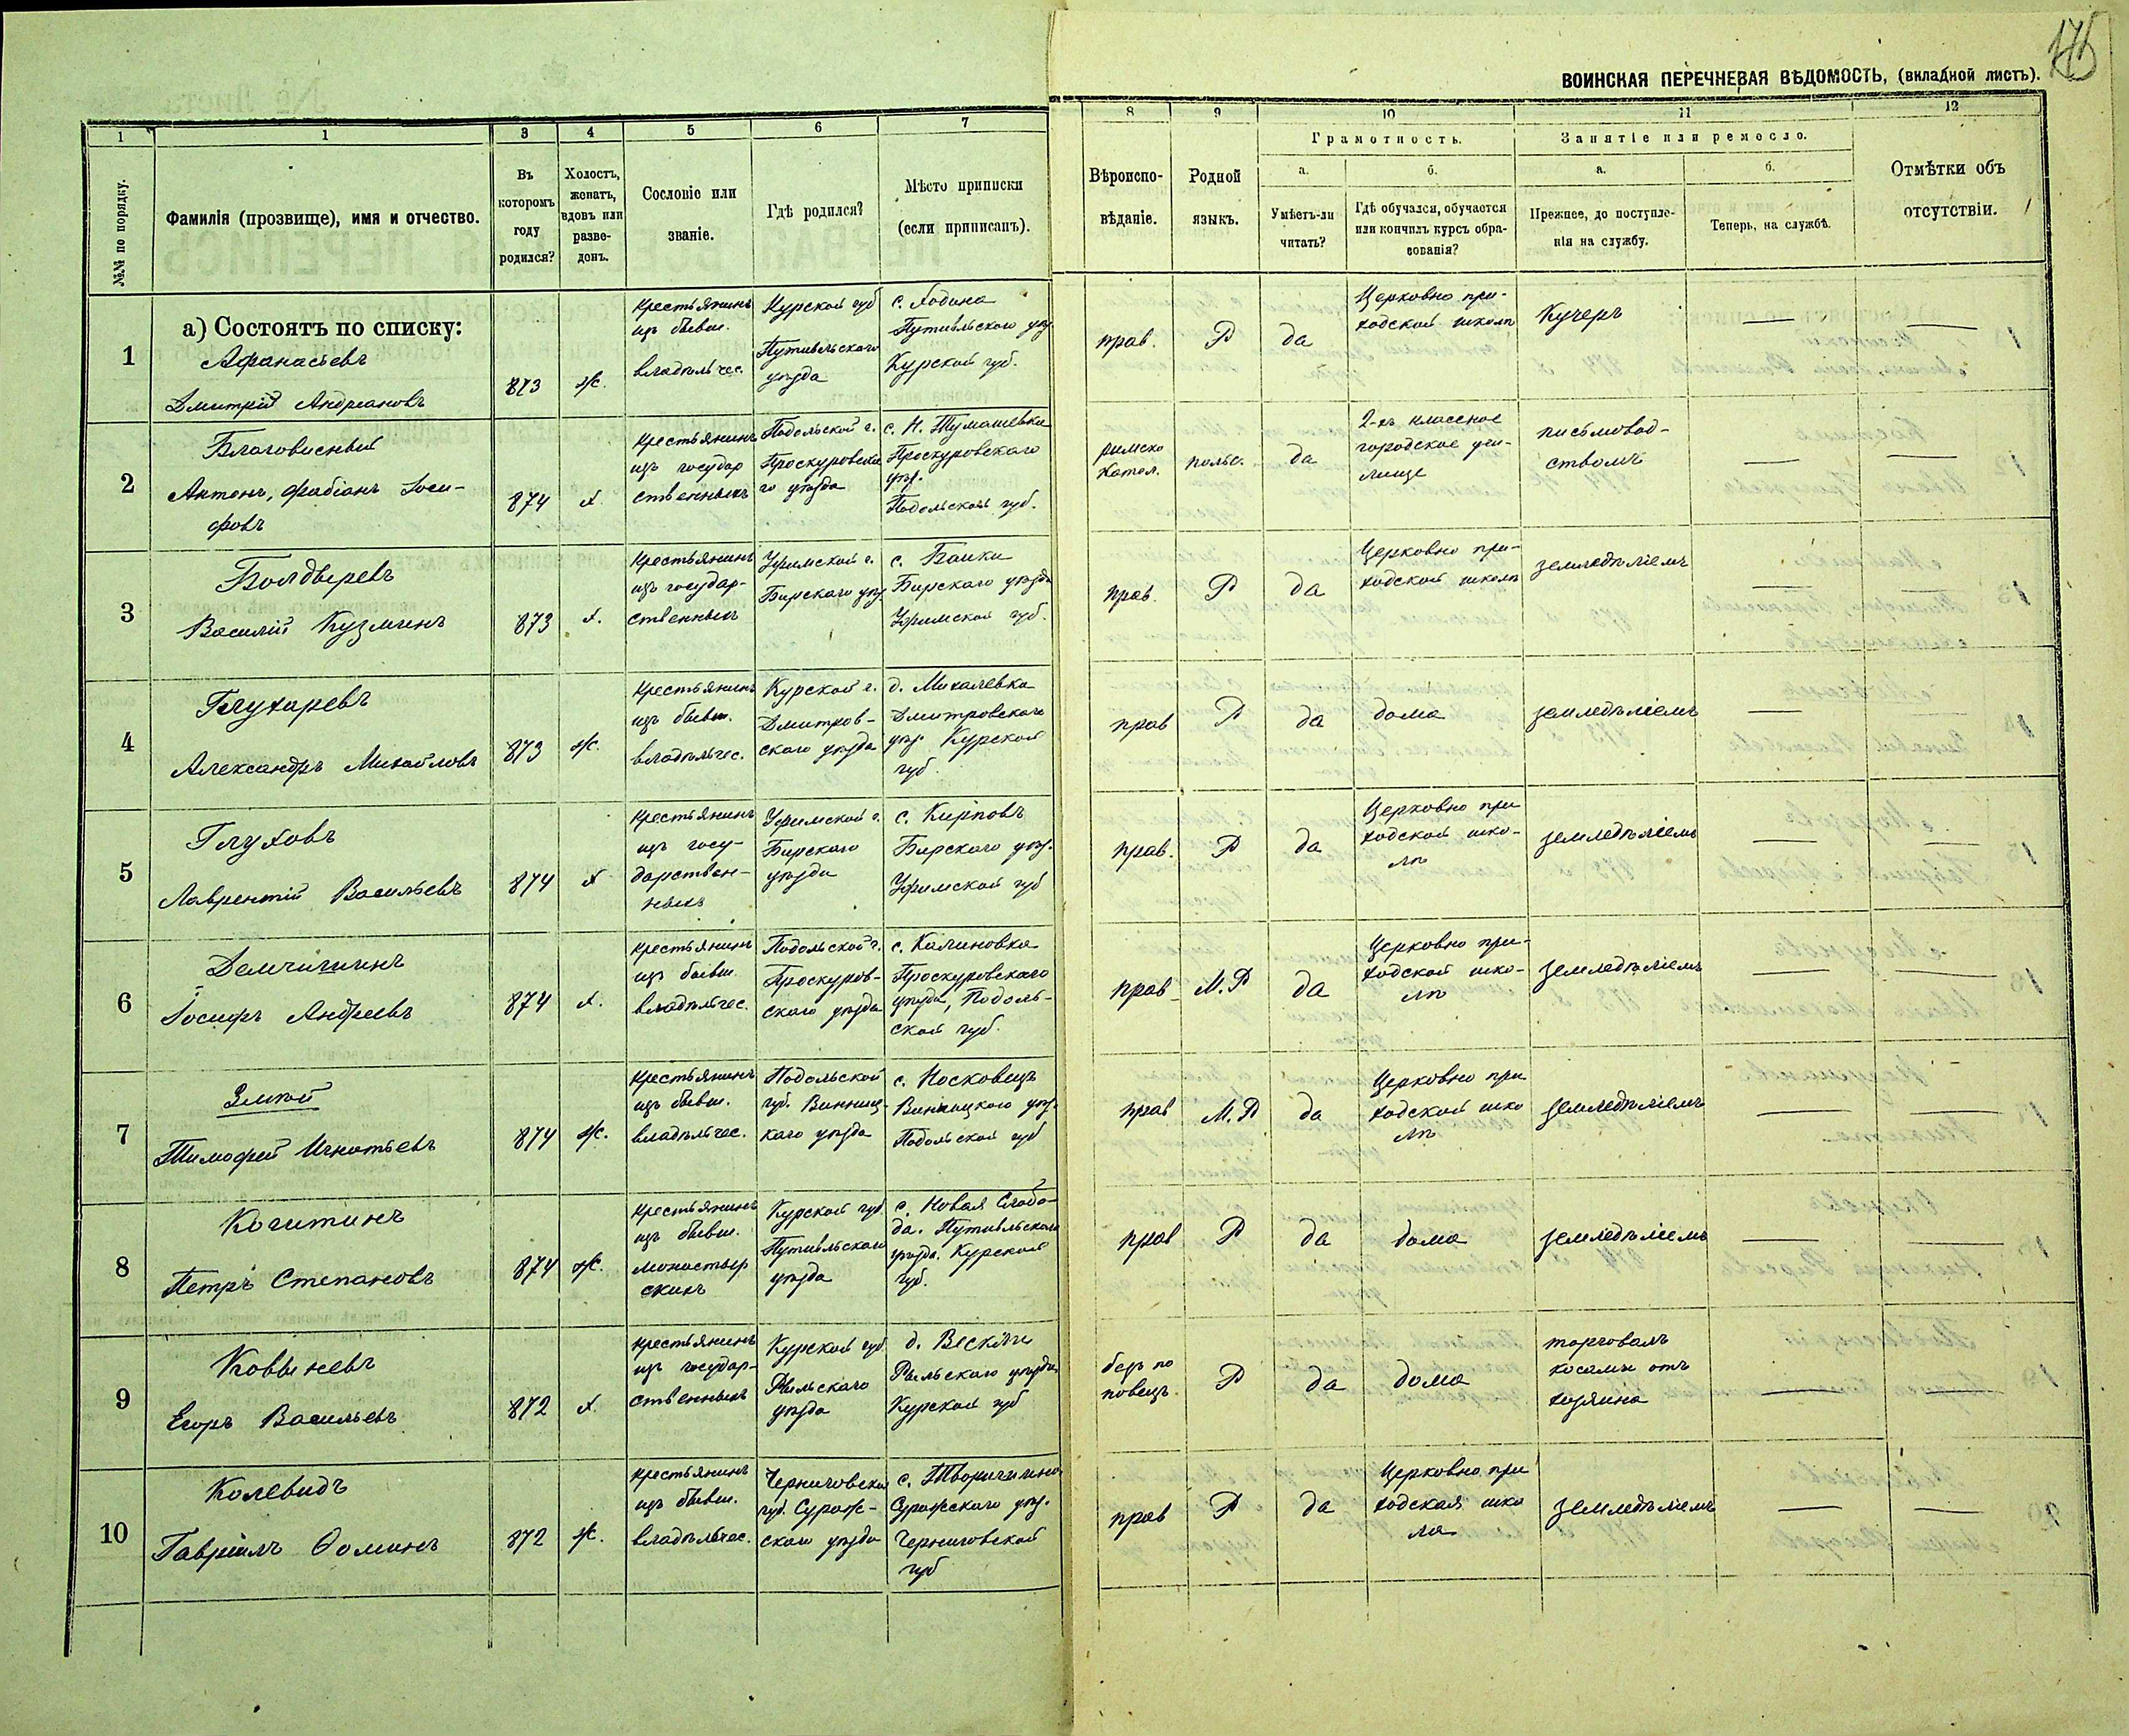 175
ВОИНСКАЯ ПЕРЕЧНЕВАЯ ВѢДОМОСТЬ, (вкладной листъ).
1 1 3 4 5 6 7 8 9 10 11 12
№№ по порядку.
Фамилія (прозвище), имя и отчество.
Въ
которомъ
году
родился?
Холостъ,
женатъ,
вдовъ или
разве-
денъ.
Сословіе или
званіе.
Гдѣ родился?
Мѣсто приписки
(если приписанъ).
Вѣроиспо-
вѣданіе.
Родной
языкъ.
Грамотность.
а.
Умѣетъ-ли
читать?
б.
Гдѣ обучался, обучается
или кончилъ курсъ обра-
зованія?
Занятіе или ремесло.
а.
Прежнее, до поступле-
нія на службу.
б.
Теперь, на службѣ.
Отмѣтки объ
отсутствіи.
а) Состоятъ по списку:
1
Афанасьевъ
Дмитрій Андреановъ
873
ж.
крестьянинъ
изъ бывш.
владѣльчес.
Курской губ
Путивльского
уѣзда
с.
Путивльского уѣз.
Курской губ.
прав.
Р
да
Церковно при-
ходской школѣ
Кучеръ
2
Благовисный
Антонъ, Фабіанъ Іоси-
фовъ
874
х.
крестьянинъ
изъ государ
ственныхъ
Подольской г.
Проскуровска
го уѣзда
с. Н. Тумашевка
Проскуровского
уѣз.
Подольской губ.
римско
катол.
польс.
да
2-хъ классное
городское учи-
лище
письмовод-
ствомъ
3
Болдыревъ
Василій Кузминъ
873
х.
крестьянинъ
изъ государ-
ственныхъ
Уфимской г.
Бирского уѣз
с. Байки
Бирскаго уѣзда
Уфимской губ.
прав.
Р
да
Церковно при-
ходской школѣ
земледѣліемъ
4
Глухаревъ
Александръ Михайловъ
873
ж.
крестьянинъ
изъ бывш.
владѣльчес.
Курской г.
Дмитров-
ского уѣзда
д. Михалевка
Дмитровского
уѣз. Курской
губ.
прав
Р
да
дома
земледѣліемъ
5
Глуховъ
Лаврентій Васильевъ
874
х
крестьянинъ
изъ госу-
дарствен-
ныхъ
Уфимской г.
Бирского
уѣзда
с.
Бирского уѣз.
Уфимской губ
прав.
Р
да
Церковно при
ходской шко-
лѣ
земледѣліемъ
6
Демчишинъ
Іосифъ Андреевъ
874
х.
крестьянинъ
изъ бывш.
владѣльчес.
Подольской г.
Проскуров-
ского уѣзда
с. Калиновка
Проскуровского
уѣзда, Подоль-
ской губ.
прав
М.Р
да
Церковно при-
ходской шко-
лѣ
земледѣліемъ
7
Змѣй
Тимофей Игнатьевъ
874
ж.
крестьянинъ
изъ бывш.
владѣльчес.
Подольской
губ. Винниц-
каго уѣзда
с. Носковецъ
Винницкого уѣз.
Подольской губ
прав
М.Р
да
Церковно при
ходской шко
лѣ
земледѣліемъ
8
Кочитинъ
Петръ Степановъ
874
ж.
крестьянинъ
изъ бывш.
монастыр
скихъ
Курской губ.
Путивльского
уѣзда
с. Новая Слобо-
да. Путивльского
уѣзда. Курской
губ.
прав
Р
да
дома
земледѣліемъ
9
Ковыневъ
Егоръ Васильевъ
872
х.
крестьянинъ
изъ государ-
ственныхъ
Курской губ.
Рыльскаго
уѣзда
д.
Рыльскаго уѣзда
Курской губ
безъ по
повецъ.
Р
да
дома
торговалъ
косами отъ
хозяина
10
Колевидъ
Гавріилъ Ѳоминъ
872
ж.
крестьянинъ
изъ бывш.
владѣльчес.
Черниговской
губ. Сураж-
ского уѣзда
с.
Суражского уѣз.
Черниговской
губ
прав
Р
да
Церковно при
ходская шко
ла
земледѣліемъ